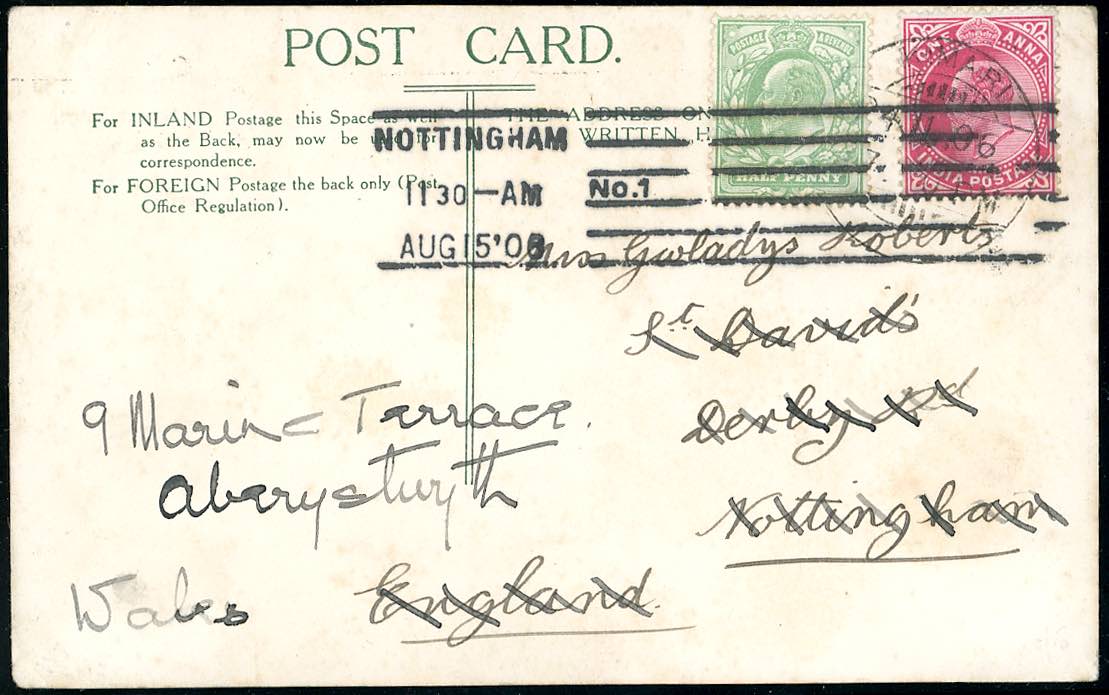 POST CARD.
POSTAGE & REVENUE
HALF PENNY
ONE ANNA
INDIA POSTAGE
For INLAND Postage this Space as well
as the Back, may now be
correspondence.
For FOREIGN Postage the back only (Post
Office Regulation).
THE ADDRESS ON
WRITTEN H
NOTTINGHAM
11 30-AM
AUG 15'06
No.1
06
Miss Gwladys Roberts
St David's
Derby rd
Nottingham
England.
9 Marine Terrace.
Aberystwyth
Wales